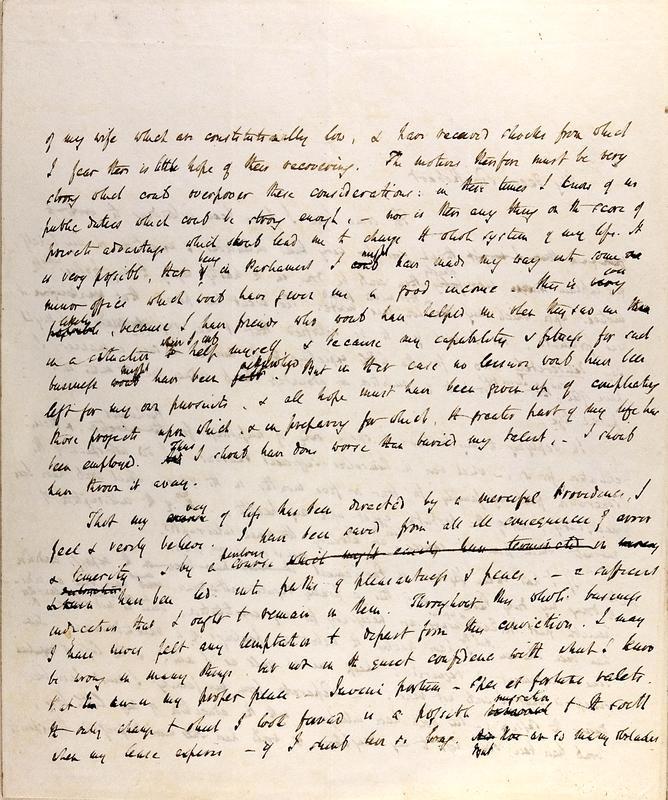 of my wife which are constitutionally low, & have received shocks from which
I fear there is little hope of their recovering. The motives therefore must be very
strong which could overpower these considerations: in these times I know of no
public duties which could be strong enough, – nor is there any thing on the score of
private advantage which should lead me to change the whole system of my life. It
is very possible, that if being in Parliament I might have made my way into some
minor office which would have given me a good income – this is even
likely, because I have friends who would have helped me when they saw me
in a situation where I could help myself, & because my capability & fitness for such
business might have been acknowledged. But in that case no leisure would have been
left for my own pursuits, & all hope must have been given up of completing
those projects upon which, & in preparing for which, the greater part of my life has
been employed. Thus I should have done worse than buried my talent, – I should
have thrown it away.
That my way of life has been directed by a merciful Providence, I
feel & verily believe. I have been saved from all ill consequences of error
& temerity, & by a perilous course which might easily have terminated in
have been led into paths of pleasantness & peace. – a sufficient
indication that I ought to remain in them. Throughout this whole business
I have never felt any temptation to depart from this conviction. I may
be wrong in many things but not in the quiet confidence with which I know
that I am in my proper place. Inveni portum – spes et fortuna valete.
The only change to which I look forward is a possible migration to the South
when my lease expires – if I should live so long. But there are so many obstacles